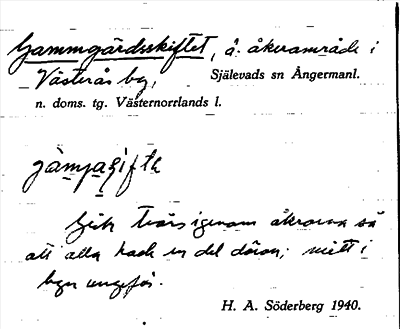 Gammgårdsskiftet, å. åkerområde i
Västerås by, Själevads sn Ångermanl.
n. doms. tg. Västernorrlands l.
Gick tvärs igenom åkrarna så
att alla hade en del däran; mitt i
byn ungefär.
H. A. Söderberg 1940.